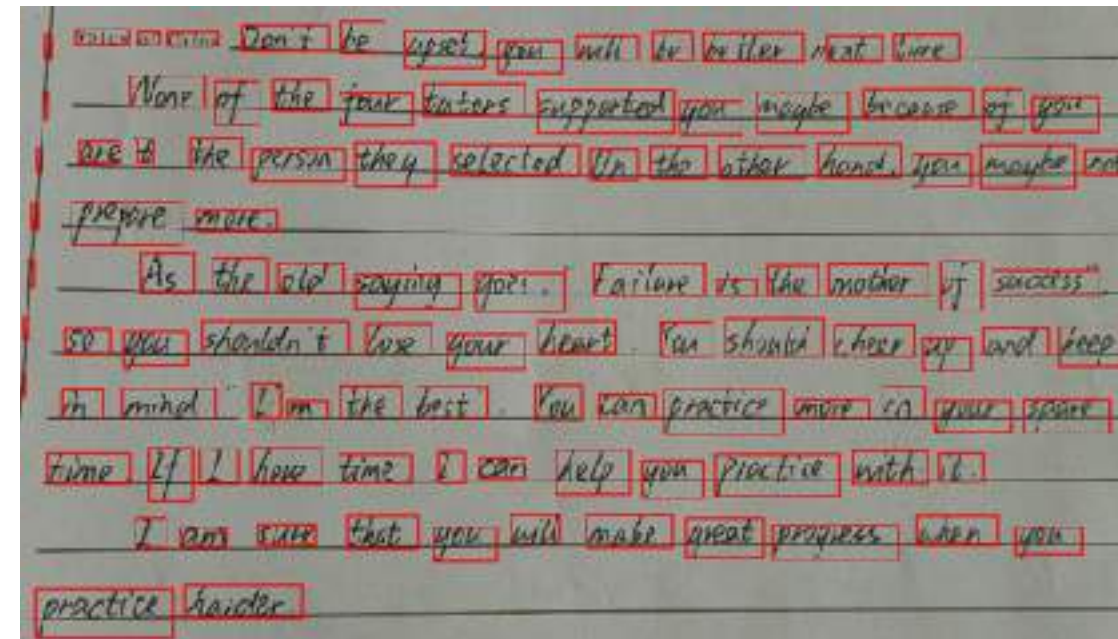 Don't be upset, you will be better next time
None of the four tutors supported you maybe because of you
are t the person they selected On the other hand, you maybe
prepare more.
As the old saying goes: "Failure is the mother of success".
so you shouldn't lose your heart. You should cheer up and keep
in mind "I'm the best". You can practice more in your spare
time. If I have time I can help you practice with it.
I am sure that you will make great progress when you
practice harder